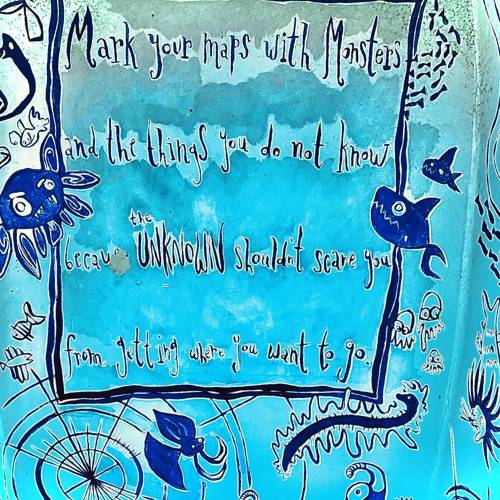 Mark your maps with Monsters
and the things you do not know
becau. the UNKNOWN shouldn't scare you
from getting where you want to go.